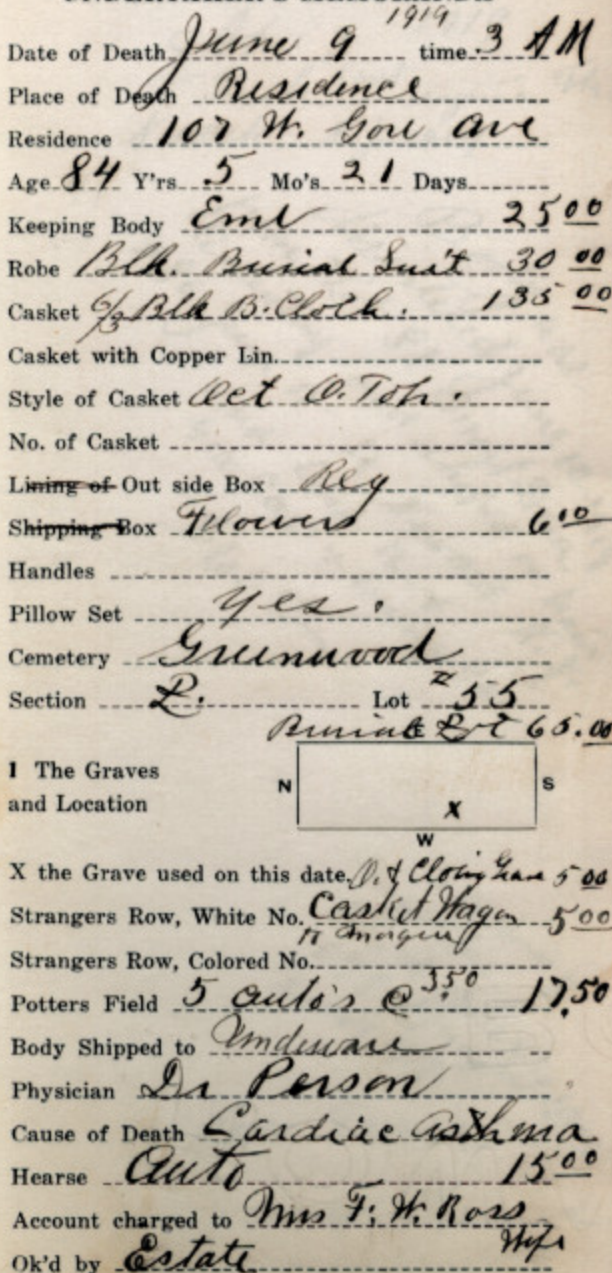 1919
Date of Death June 9 time 3 AM
Place of Death Residence
Residence 107 W. Gore Ave
Age 84 Y'rs 5 Mo's 21 Days
Keeping Body Eml 25 00
Robe Blk. Burial Suit 30 00
Casket 6/3 Blk B. Cloth. 135 00
Casket with Copper Lin.
Style of Casket Oct O.
No. of Casket
Lining of Out side Box Reg
Shipping Box Flowers 6 00
Handles
Pillow Set yes.
Cemetery Greenwood
Section L. Lot # 55
Burial Lot 65.00
1 The Graves
and Location
N S
X
W
X the Grave used on this date O. & Closing Grave 5 00
Strangers Row, White No. Casket Wagon 5 00
to morgue
Strangers Row, Colored No.
Potters Field 5 auto's @ 3.50 17.50
Body Shipped to Underware
Physician Dr Person
Cause of Death Cardiac Asthma
Hearse Auto 15 00
Account charged to Mrs F. W. Ross
Wife
Ok'd by Estate